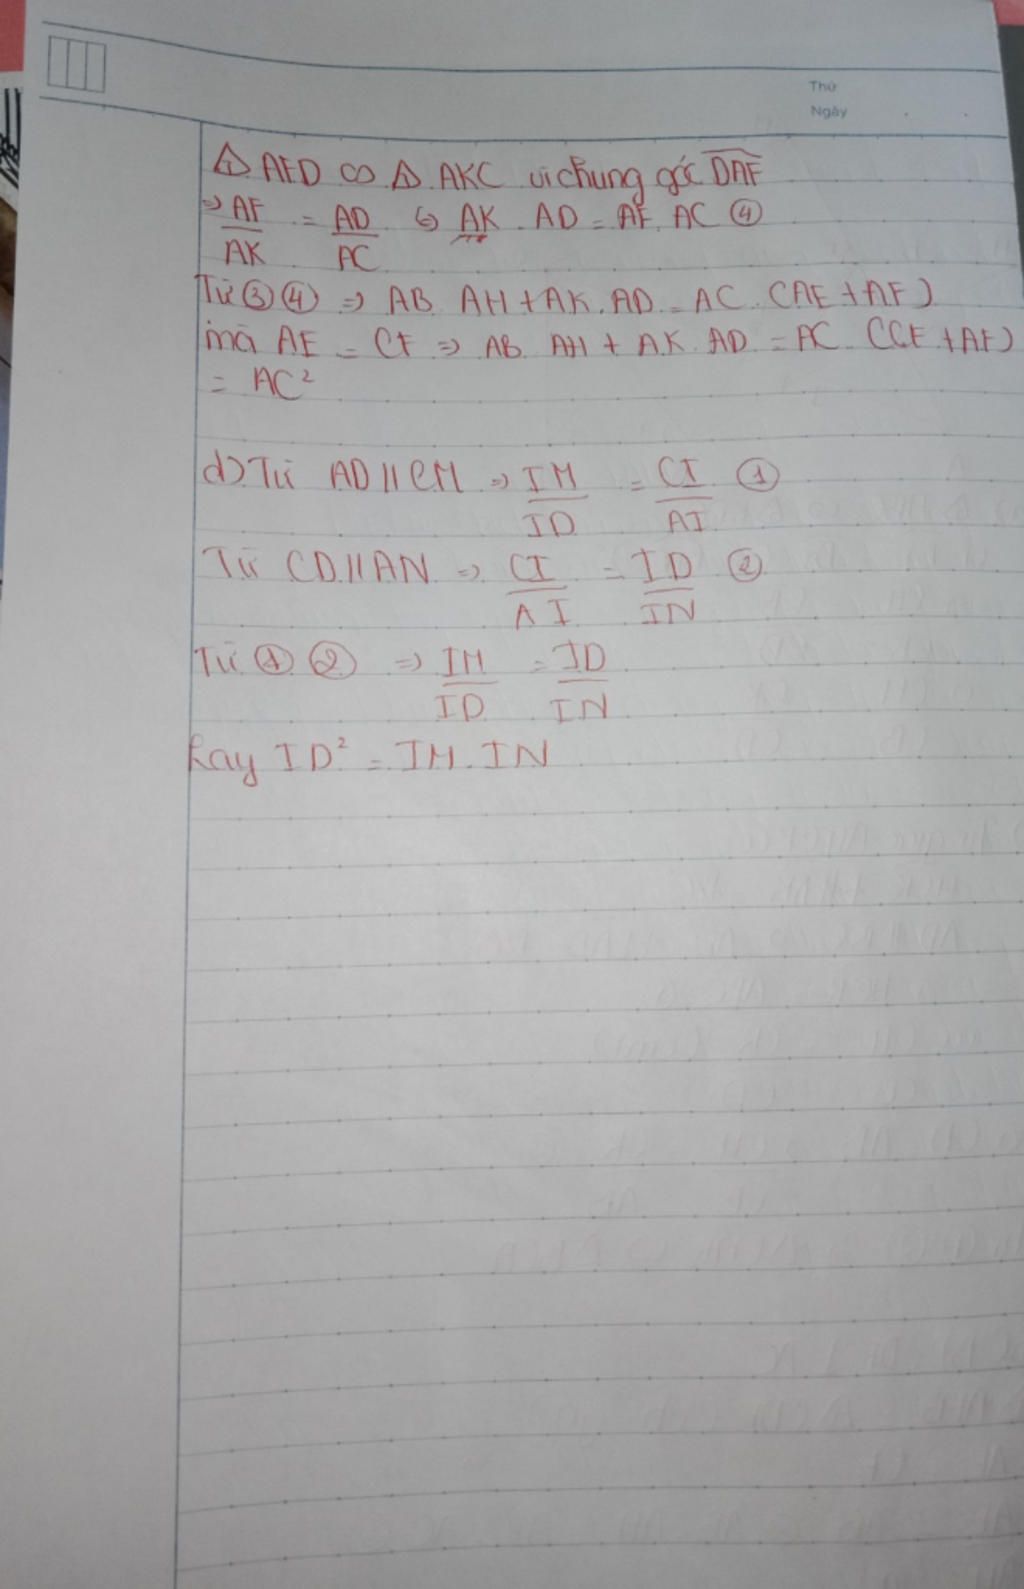 Thứ
Ngày
△ AFD ∽ △ AKC vì chung góc DAF
=> AF/AK = AD/AC <=> AK . AD = AF . AC ④
Từ ③ ④ => AB . AH + AK . AD = AC . (AE + AF)
mà AE = CF => AB . AH + AK . AD = AC . (CF + AF)
= AC²
d) Từ AD // CM => IM/ID = CI/AI ①
Từ CD // AN => CI/AI = ID/IN ②
Từ ① ② => IM/ID = ID/IN
hay ID² = IM . IN